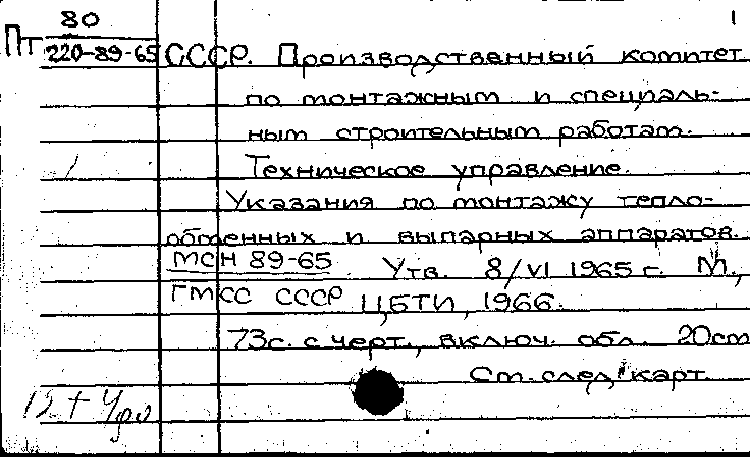 80
Пт 220-89-65
1
СССР. Производственный комитет
по монтажным и специаль-
ным строительным работам.
Техническое управление.
Указания по монтажу тепло-
обменных и выпарных аппаратов.
МСН 89-65 Утв. 8/VI 1965 г. М.,
ГМСС СССР ЦБТИ, 1966.
73с. с черт., включ. обл. 20см
См. след. карт.